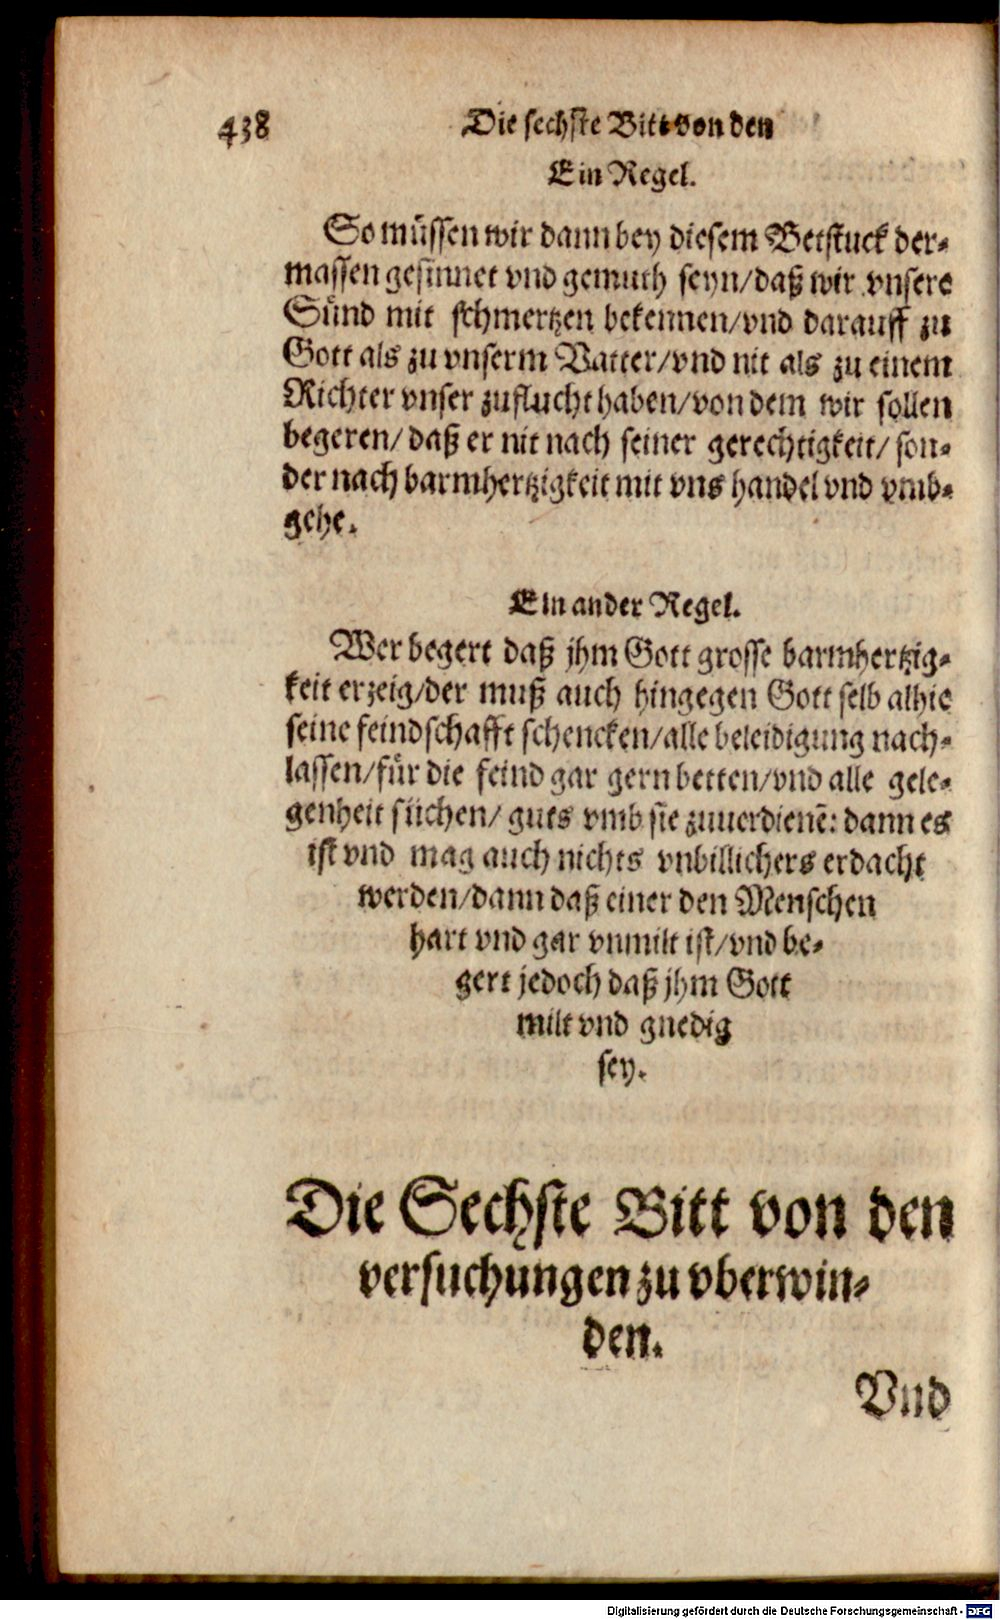 438 Die sechste Bitt von den
Ein Regel.
So müssen wir dann bey diesem Betstuck der-
massen gesinnet vnd gemuth seyn/daß wir vnsere
Sünd mit schmertzen bekennen/vnd darauff zu
Gott als zu vnserm Vatter/vnd nit als zu einem
Richter vnser zuflucht haben/von dem wir sollen
begeren/ daß er nit nach seiner gerechtigkeit/ son-
der nach barmhertzigkeit mit vns handel vnd vmb-
gehe.
Ein ander Regel.
Wer begert daß jhm Gott grosse barmhertzig-
keit erzeig/der muß auch hingegen Gott selb alhie
seine feindschafft schencken/alle beleidigung nach-
lassen/für die feind gar gern betten/vnd alle gele-
genheit süchen/ guts vmb sie zuuerdienē: dann es
ist vnd mag auch nichts vnbillichers erdacht
werden/dann daß einer den Menschen
hart vnd gar vnmilt ist/vnd be-
gert jedoch daß jhm Gott
milt vnd gnedig
sey.
Die Sechste Bitt von den
versuchungen zu vberwin-
den.
Vnd
Digitalisierung gefördert durch die Deutsche Forschungsgemeinschaft - DFG